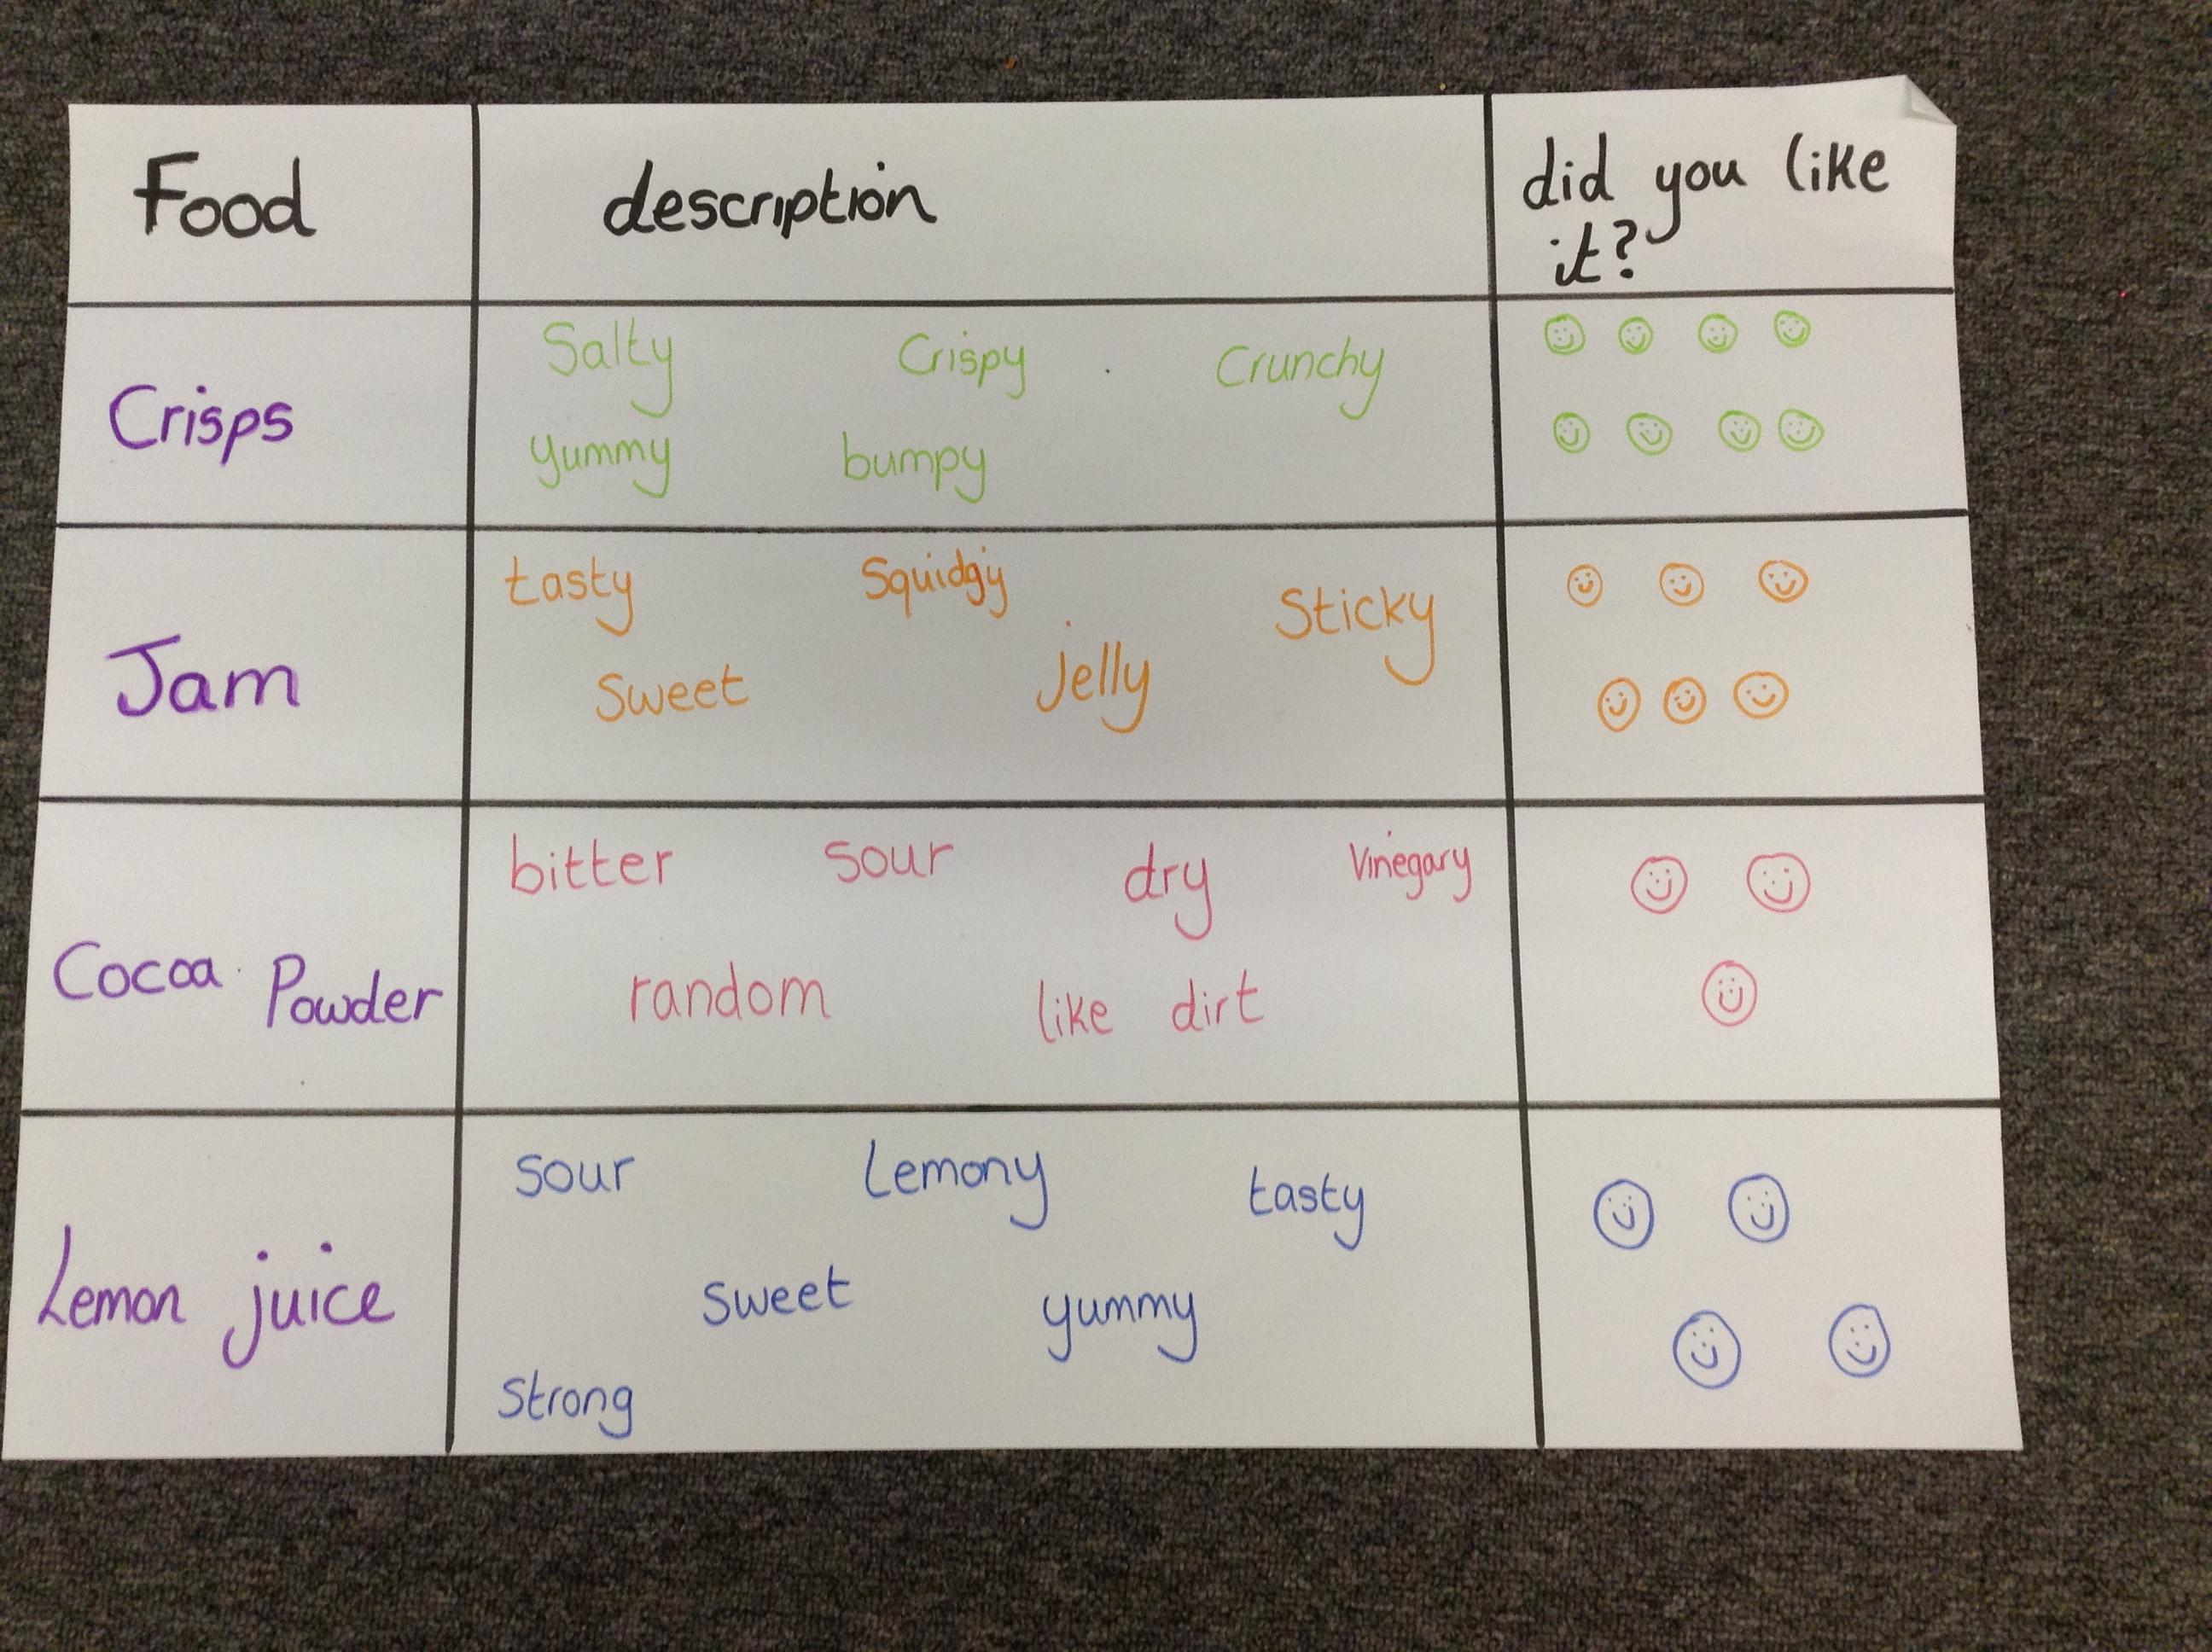 Food description did you like
it?
Crisps
Salty Crispy Crunchy
yummy bumpy
Jam
tasty Squidgy Sticky
Sweet jelly
Cocoa Powder
bitter sour dry Vinegary
random like dirt
Lemon juice
sour Lemony tasty
sweet yummy
Strong